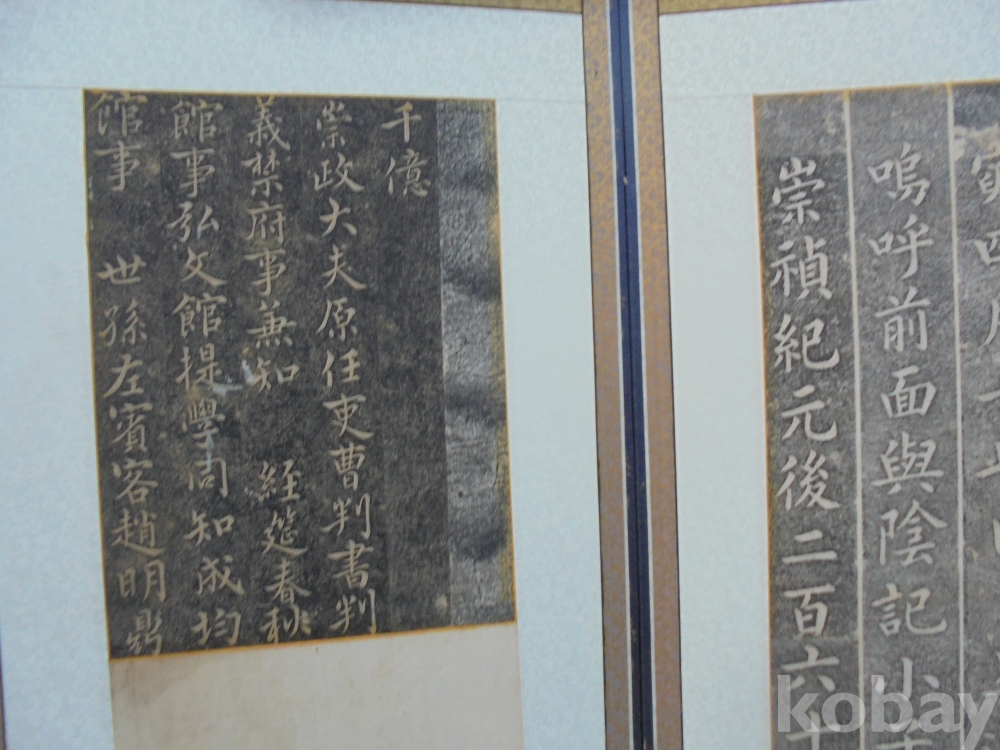 嗚呼前面與陰記小
崇禎紀元後二百六十
千億
崇政大夫原任吏曹判書判
義禁府事兼知 經筵春秋
館事弘文館提學同知成均
館事 世孫左賓客趙明鼎
kobay